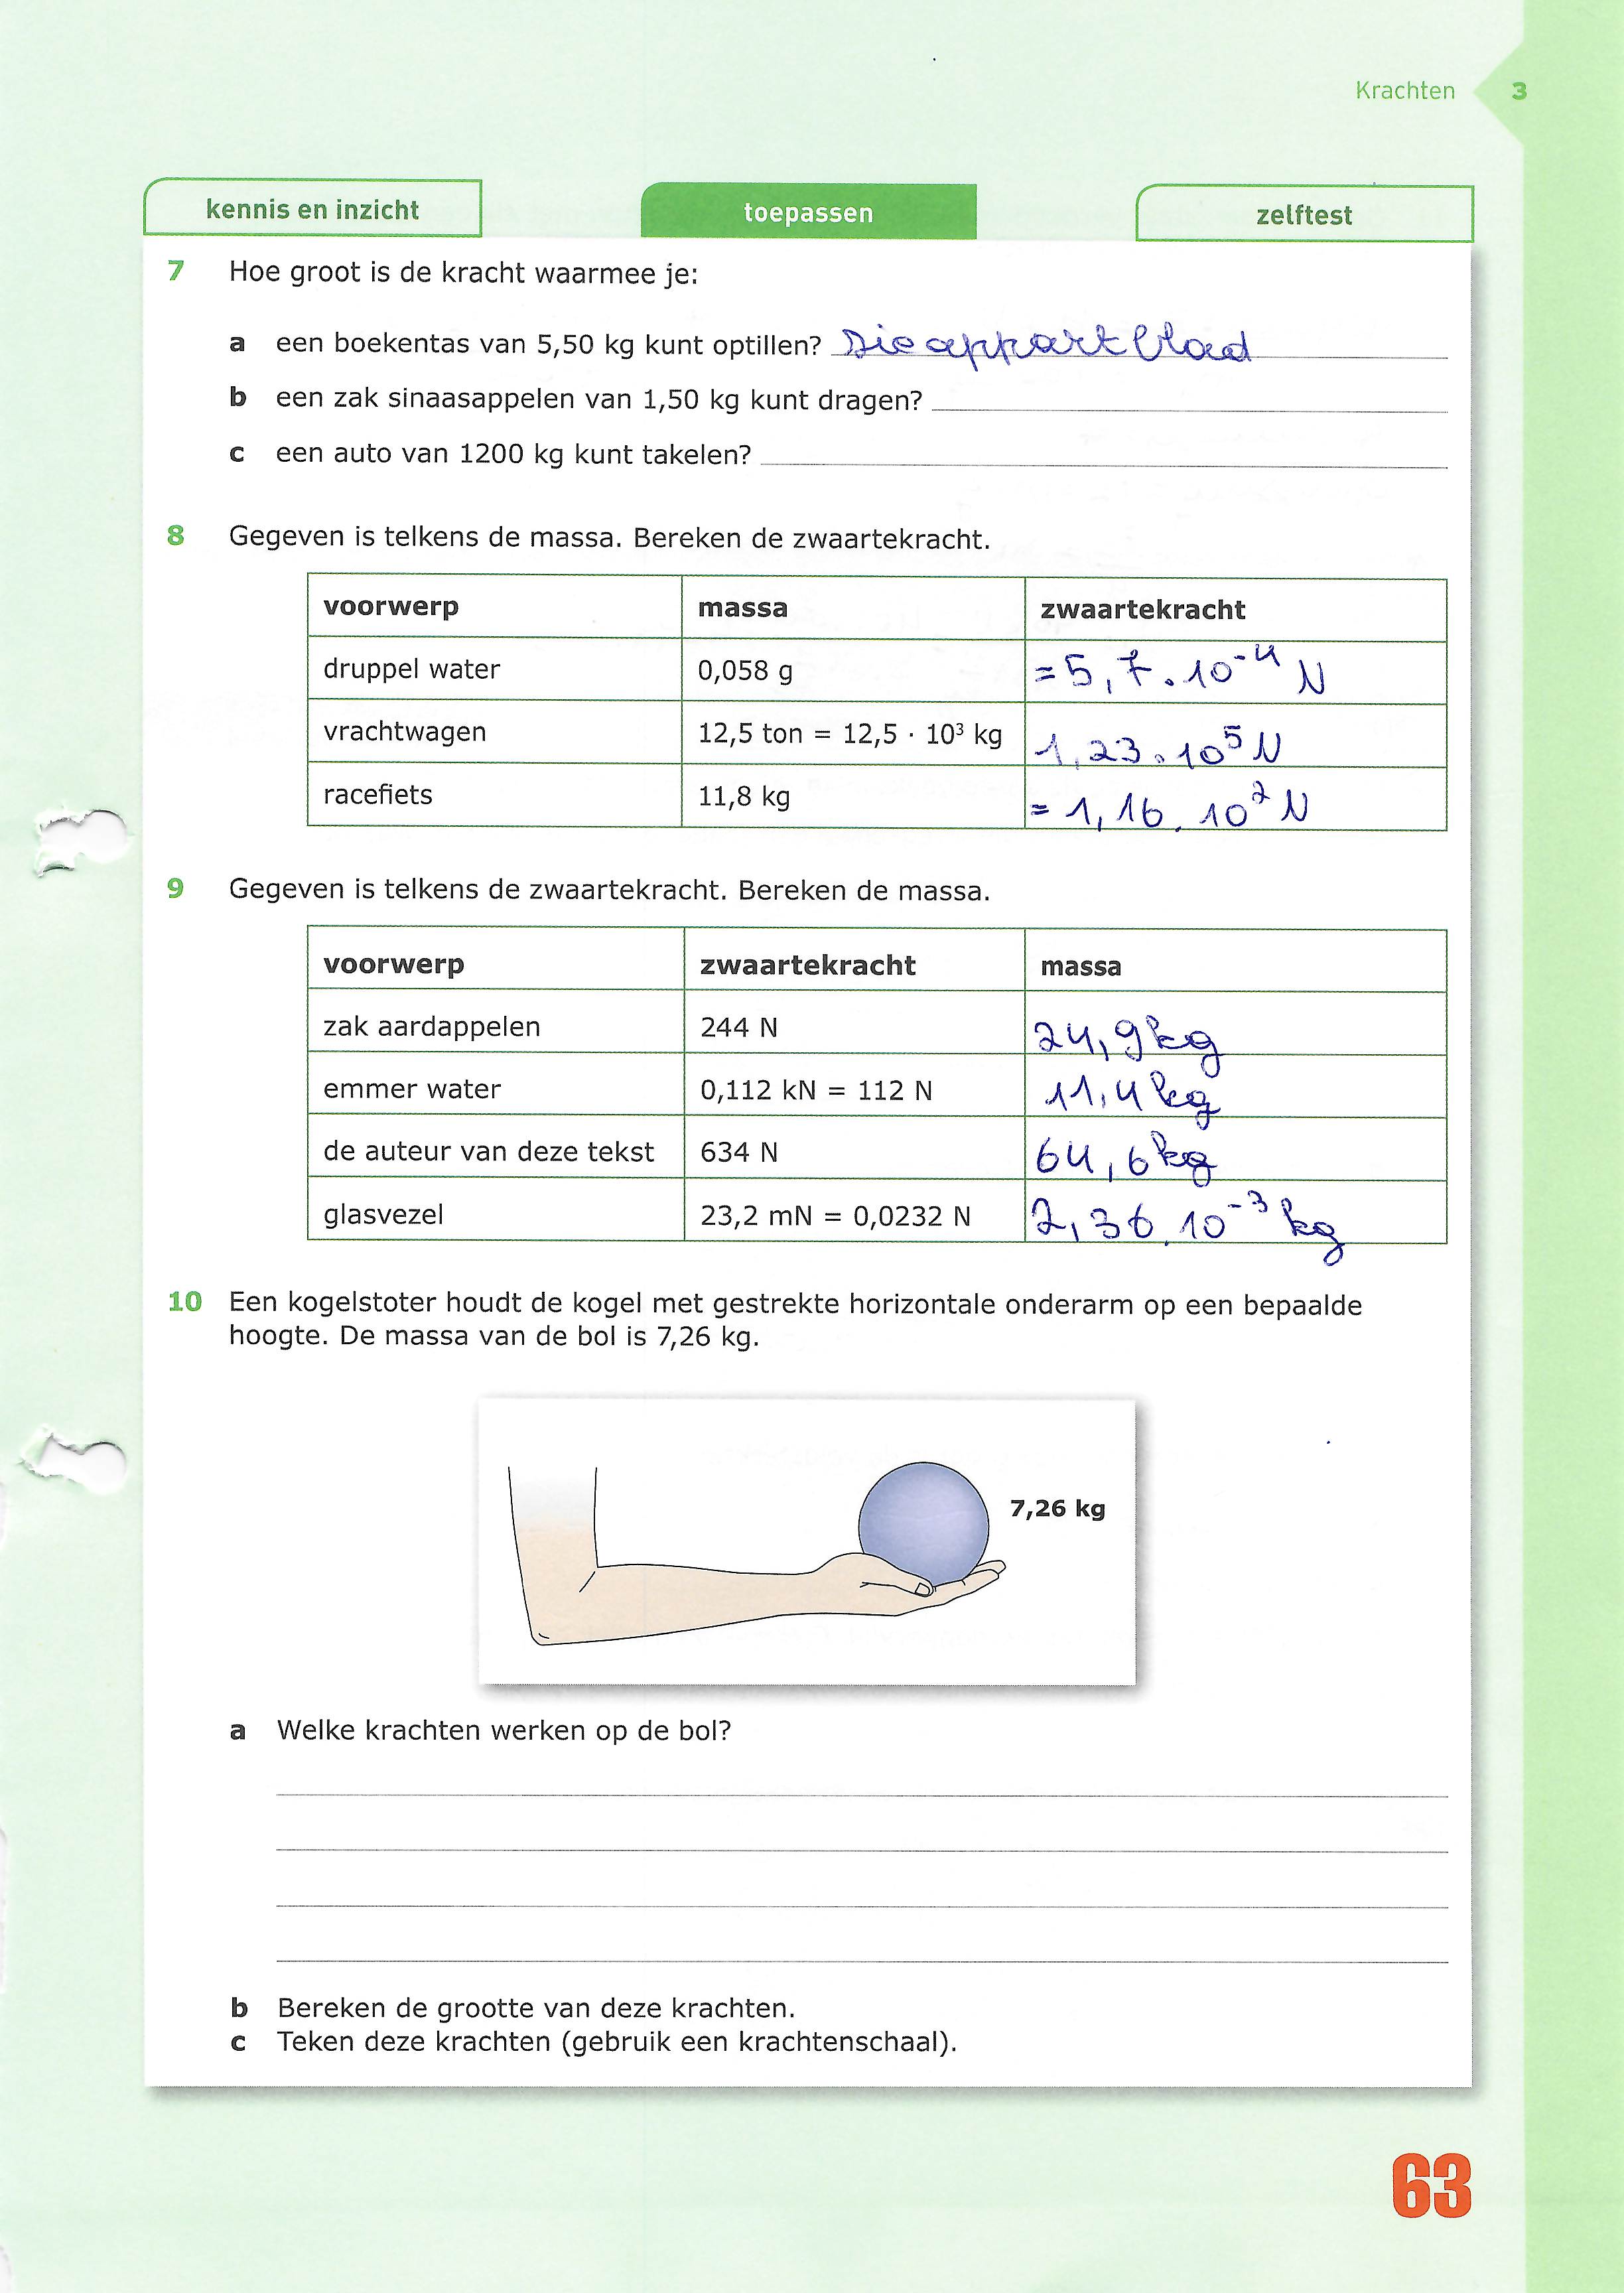 Krachten 3
kennis en inzicht toepassen zelftest
7 Hoe groot is de kracht waarmee je:
a een boekentas van 5,50 kg kunt optillen? Zie appart blad
b een zak sinaasappelen van 1,50 kg kunt dragen?
c een auto van 1200 kg kunt takelen?
8 Gegeven is telkens de massa. Bereken de zwaartekracht.
voorwerp massa zwaartekracht
druppel water 0,058 g = 5,7 . 10⁻⁴ N
vrachtwagen 12,5 ton = 12,5 · 10³ kg 1,23 . 10⁵ N
racefiets 11,8 kg = 1,16 . 10² N
9 Gegeven is telkens de zwaartekracht. Bereken de massa.
voorwerp zwaartekracht massa
zak aardappelen 244 N 24,9 kg
emmer water 0,112 kN = 112 N 11,4 kg
de auteur van deze tekst 634 N 64,6 kg
glasvezel 23,2 mN = 0,0232 N 2,36 . 10⁻³ kg
10 Een kogelstoter houdt de kogel met gestrekte horizontale onderarm op een bepaalde
hoogte. De massa van de bol is 7,26 kg.
7,26 kg
a Welke krachten werken op de bol?
b Bereken de grootte van deze krachten.
c Teken deze krachten (gebruik een krachtenschaal).
63